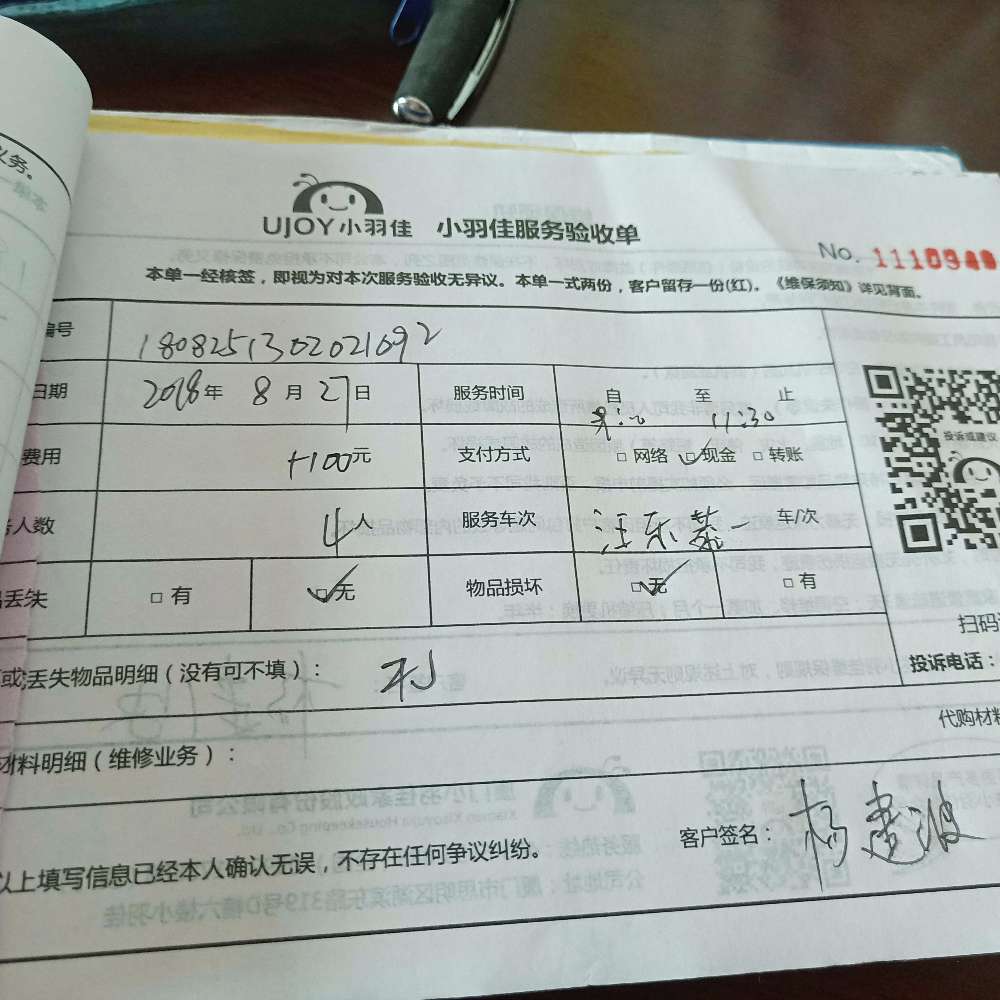 UJOY小羽佳 小羽佳服务验收单
No. 1110940
本单一经核签，即视为对本次服务验收无异议。本单一式两份，客户留存一份(红)。《维保须知》详见背面。
编号 1808251302021092
日期 2018年 8月 27日 服务时间 自 至 止
11:30
费用 +100元 支付方式 □网络 ☑现金 □转账
人数 4人 服务车次 汪东 一 车/次
丢失 □有 ☑无 物品损坏 ☑无 □有
投诉或建议
扫码
或丢失物品明细（没有可不填）：
投诉电话：
代购材料
材料明细（维修业务）：
客户签名：杨建波
以上填写信息已经本人确认无误，不存在任何争议纠纷。